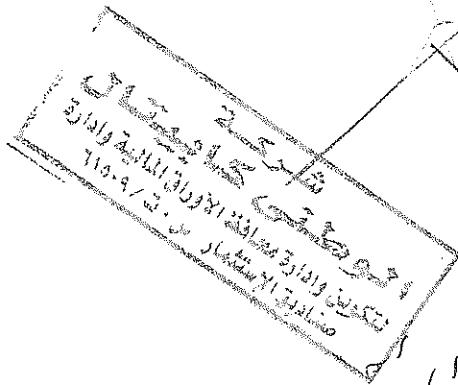 شركة
كابيتال
لتكوين وادارة محافظ الاوراق المالية وادارة
صناديق الإستثمار س.ت/٦١٥٠٩